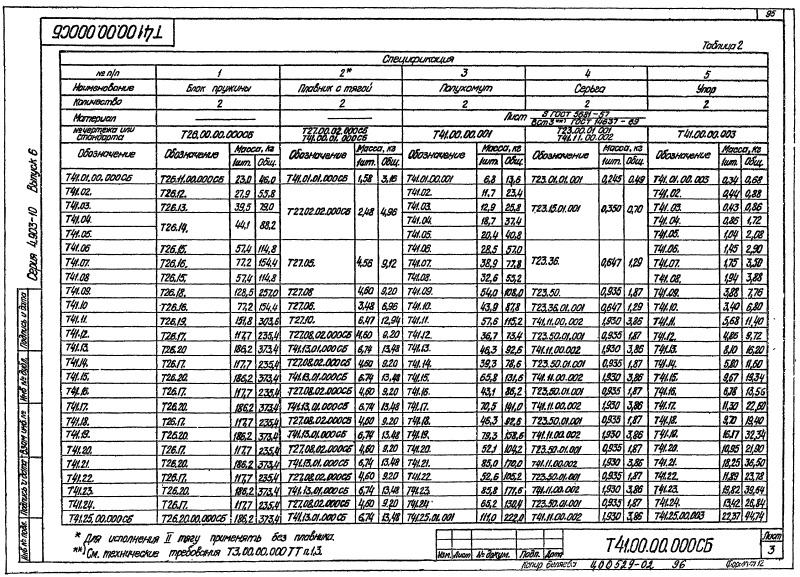 95
Т41.00.00.000СБ
Таблица 2
Спецификация
№ п/п 1 2* 3 4 5
Наименование Блок пружины Плавник с тягой Полухомут Серьга Упор
Количество 2 2 2 2 2
Материал Лист 8 ГОСТ 5681-57
Вст3**) ГОСТ 14637-69
№ чертежа или стандарта Т26.00.00.000СБ Т27.00.02.000СБ Т41.00.01.000СБ Т41.00.00.001 Т23.00.01.001 Т41.11.00.002 Т41.00.00.003
Обозначение Обозначение Масса, кг Обозначение Масса, кг Обозначение Масса, кг Обозначение Масса, кг Обозначение Масса, кг
1шт. Общ. 1шт. Общ. 1шт. Общ. 1шт. Общ. 1шт. Общ.
Т41.01.00.000СБ Т26.11.00.000СБ 23,0 46,0 Т41.01.01.000СБ 1,58 3,16 Т41.01.00.001 6,8 13,6 Т23.01.01.001 0,245 0,49 Т41.01.00.003 0,34 0,68
Т41.02. Т26.12. 27,9 55,8 Т27.02.02.000СБ 2,48 4,96 Т41.02. 11,7 23,4 Т23.15.01.001 0,350 0,70 Т41.02. 0,44 0,88
Т41.03. Т26.13. 39,5 79,0 Т41.03. 12,9 25,8 Т41.03. 0,43 0,86
Т41.04. Т26.14. 44,1 88,2 Т41.04. 18,7 37,4 Т41.04. 0,86 1,72
Т41.05. Т41.05. 20,4 40,8 Т41.05. 1,04 2,08
Т41.06 Т26.15. 57,4 114,8 Т27.05. 4,56 9,12 Т41.06. 28,5 57,0 Т23.36. 0,647 1,29 Т41.06. 1,45 2,90
Т41.07. Т26.16. 77,2 154,4 Т41.07. 38,9 77,8 Т41.07. 1,75 3,50
Т41.08 Т26.15. 57,4 114,8 Т41.08. 32,6 65,2 Т41.08. 1,94 3,88
Т41.09. Т26.18. 128,5 257,0 Т27.08 4,60 9,20 Т41.09. 54,0 108,0 Т23.50. 0,935 1,87 Т41.09. 3,88 7,76
Т41.10 Т26.16 77,2 154,4 Т27.06. 3,48 6,96 Т41.10. 43,9 87,8 Т23.36.01.001 0,647 1,29 Т41.10. 3,40 6,80
Т41.11. Т26.19. 151,8 303,6 Т27.10. 6,47 12,94 Т41.11. 57,6 115,2 Т41.11.00.002 1,930 3,86 Т41.11. 5,68 11,40
Т41.12. Т26.17. 117,7 235,4 Т27.08.02.000СБ 4,60 9,20 Т41.12. 36,7 73,4 Т23.50.01.001 0,935 1,87 Т41.12. 4,86 9,72
Т41.13. Т26.20 186,2 373,4 Т41.13.01.000СБ 6,74 13,48 Т41.13. 46,3 92,6 Т41.11.00.002 1,930 3,86 Т41.13. 8,10 16,20
Т41.14. Т26.17. 117,7 235,4 Т27.08.02.000СБ 4,60 9,20 Т41.14. 39,3 78,6 Т23.50.01.001 0,935 1,87 Т41.14. 5,80 11,60
Т41.15. Т26.20. 186,2 373,4 Т41.13.01.000СБ 6,74 13,48 Т41.15. 65,8 131,6 Т41.11.00.002 1,930 3,86 Т41.15. 9,67 19,34
Т41.16. Т26.17. 117,7 235,4 Т27.08.02.000СБ 4,60 9,20 Т41.16. 43,1 86,2 Т23.50.01.001 0,935 1,87 Т41.16. 6,78 13,56
Т41.17. Т26.20. 186,2 373,4 Т41.13.01.000СБ 6,74 13,48 Т41.17. 70,5 141,0 Т41.11.00.002 1,930 3,86 Т41.17. 11,30 22,60
Т41.18. Т26.17. 117,7 235,4 Т27.08.02.000СБ 4,60 9,20 Т41.18. 46,3 92,6 Т23.50.01.001 0,935 1,87 Т41.18. 9,70 19,40
Т41.19. Т26.20. 186,2 373,4 Т41.13.01.000СБ 6,74 13,48 Т41.19. 79,3 158,6 Т41.11.00.002 1,930 3,86 Т41.19. 16,17 32,34
Т41.20. Т26.17. 117,7 235,4 Т27.08.02.000СБ 4,60 9,20 Т41.20. 52,1 104,2 Т23.50.01.001 0,935 1,87 Т41.20. 10,95 21,90
Т41.21. Т26.20. 186,2 373,4 Т41.13.01.000СБ 6,74 13,48 Т41.21. 85,0 170,0 Т41.11.00.002 1,930 3,86 Т41.21. 18,25 36,50
Т41.22. Т26.17. 117,7 235,4 Т27.08.02.000СБ 4,60 9,20 Т41.22 52,6 105,2 Т23.50.01.001 0,935 1,87 Т41.22. 11,89 23,78
Т41.23 Т26.20. 186,2 373,4 Т41.13.01.000СБ 6,74 13,48 Т41.23 85,8 171,6 Т41.11.00.002 1,930 3,86 Т41.23. 19,82 39,64
Т41.24. Т26.17. 117,7 235,4 Т27.08.02.000СБ 4,60 9,20 Т41.24 65,2 130,4 Т23.50.01.001 0,935 1,87 Т41.24. 13,42 26,84
Т41.25.00.000СБ Т26.20.00.000СБ 186,2 373,4 Т41.13.01.000СБ 6,74 13,48 Т41.25.01.001 111,0 222,0 Т41.11.00.002 1,930 3,86 Т41.25.00.003 22,37 44,74
* Для исполнения II тягу применять без плавника.
**) См. технические требования Т3.00.00.000 ТТ п.1.3.
Т41.00.00.000СБ
Лист
3
Изм. Лист № докум. Подп. Дата
Копир. Беляева 400529-02 96 Формат 12
Серия 4.903-10 Выпуск 6
Инв. № подл. Подпись и дата Взам. инв. № Инв. № дубл. Подпись и дата